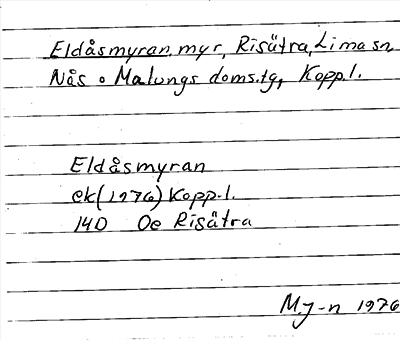 Eldåsmyran, myr, Risätra, Lima sn
Nås o Malungs doms.tg, Kopp.l.
Eldåsmyran
ek (1976) Kopp.l.
14D Oe Risätra
My-n 1976